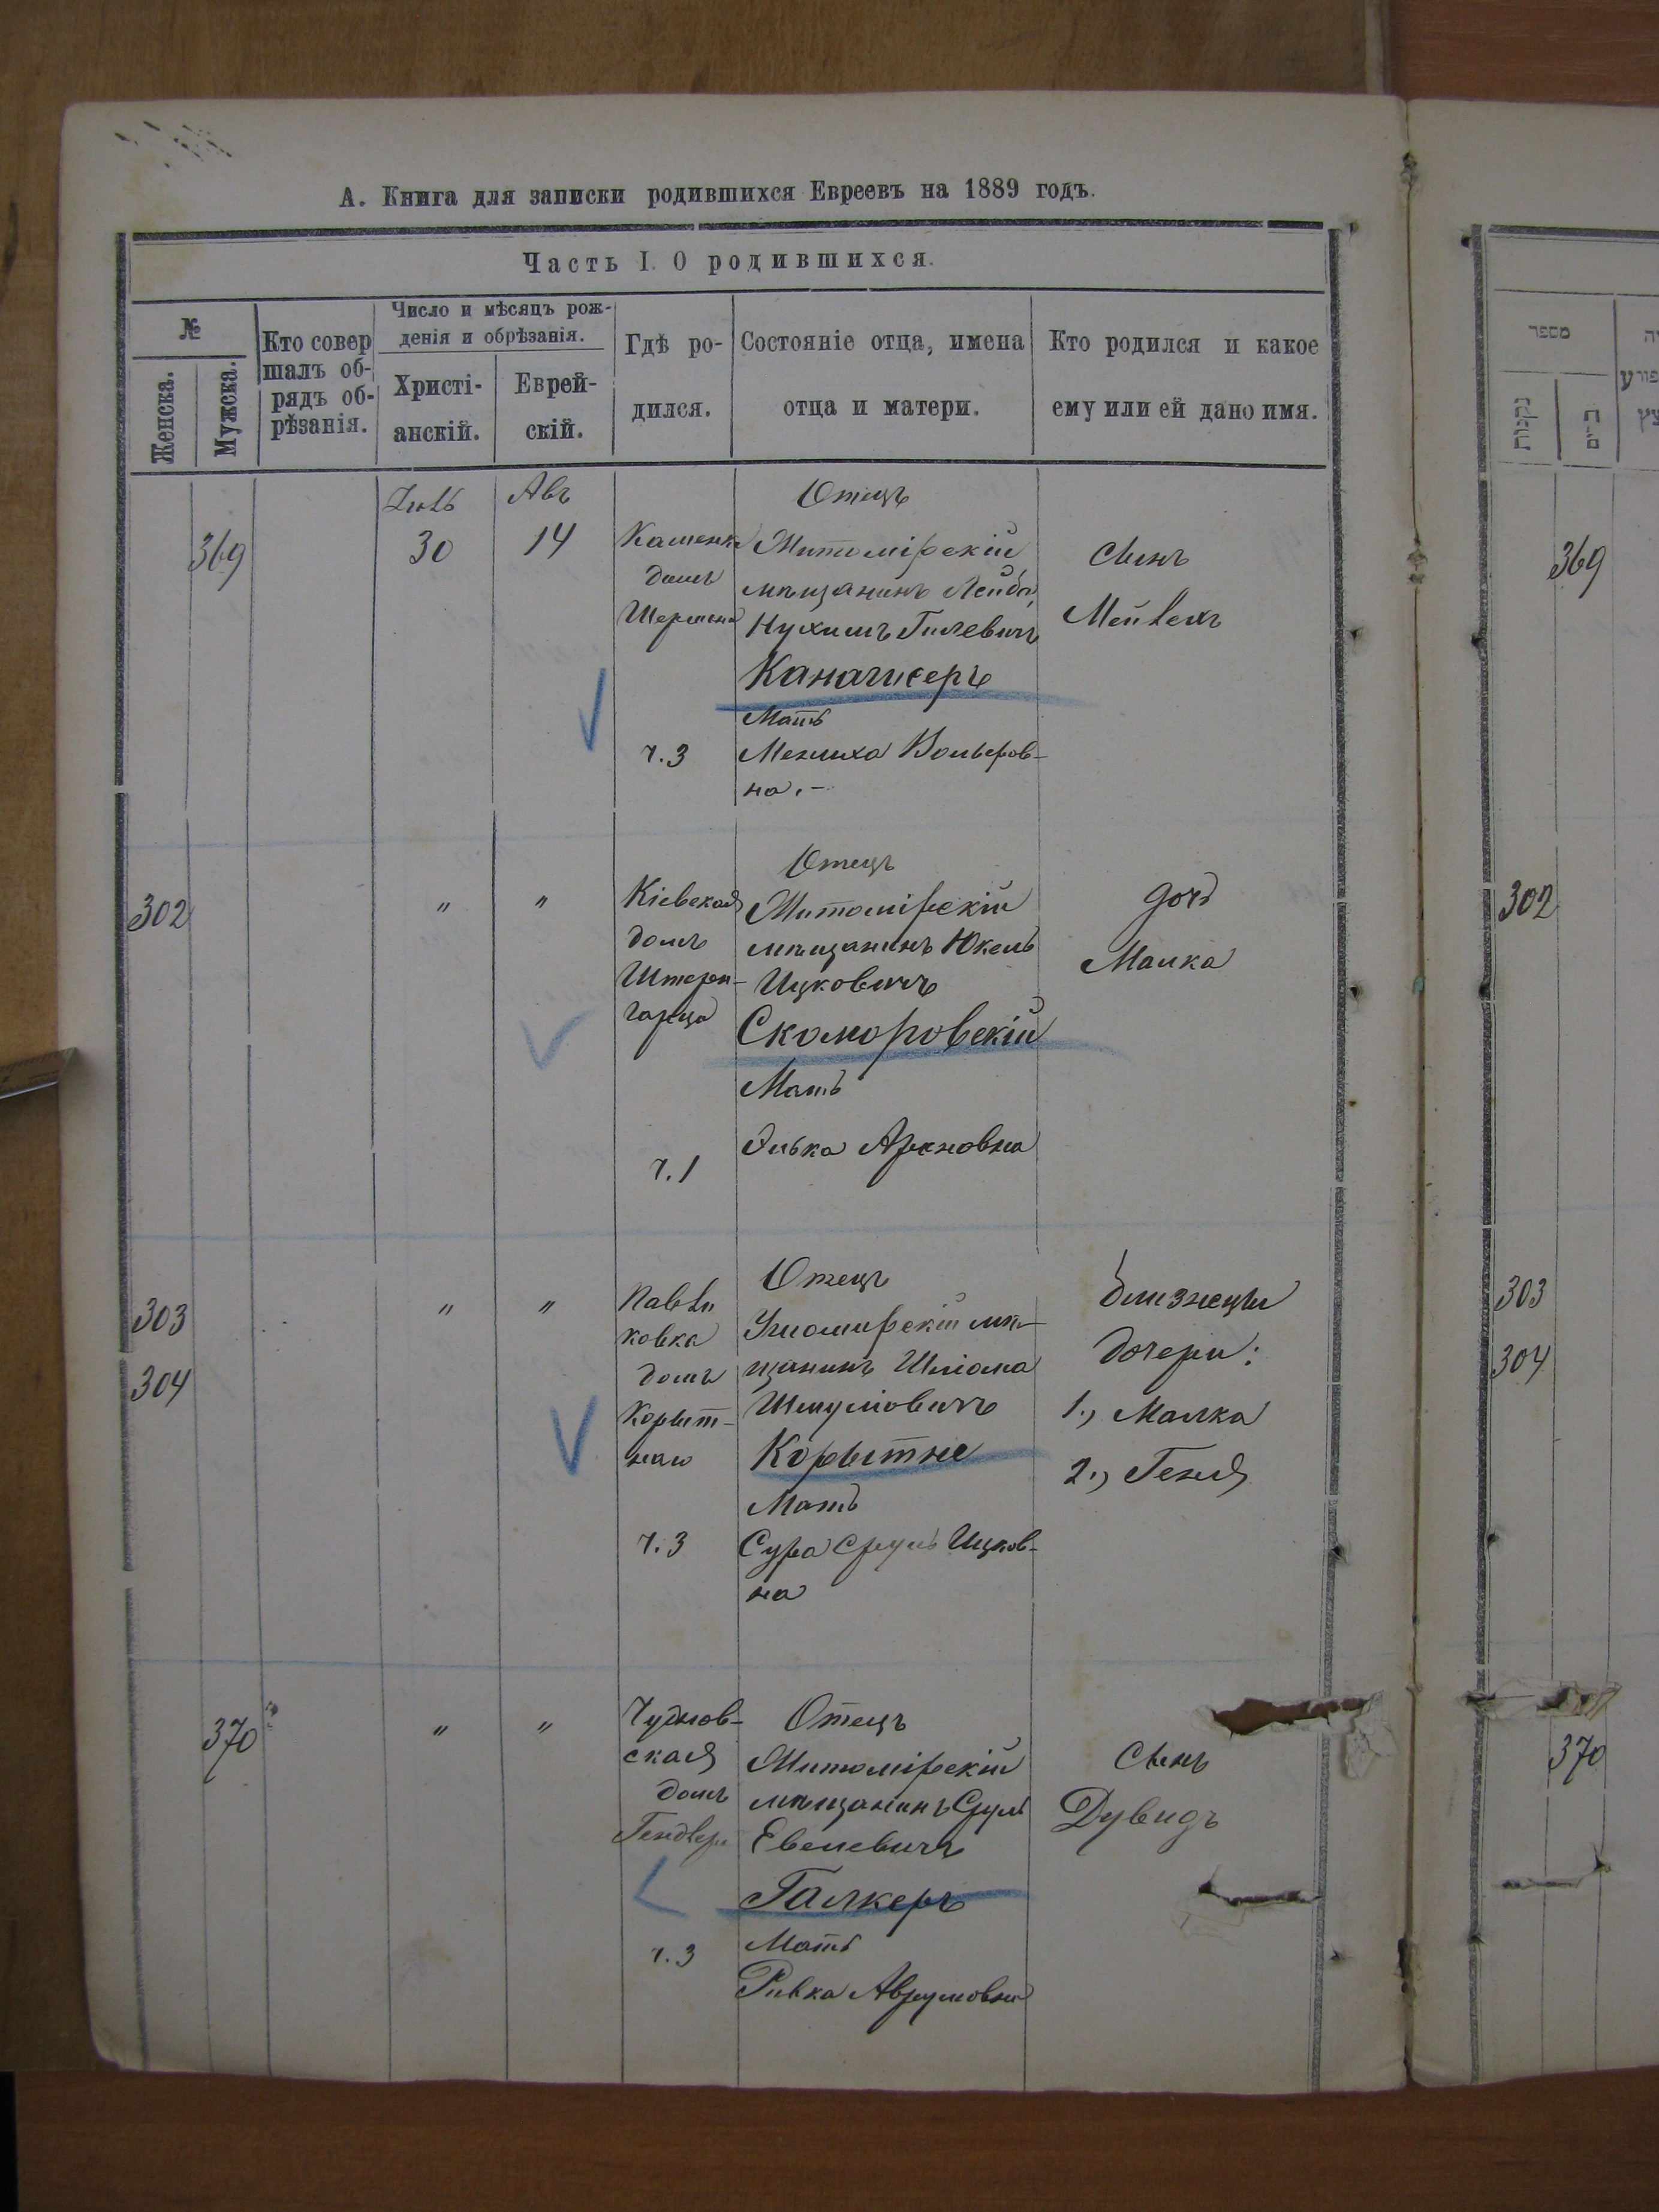 А. Книга для записки родившихся Евреевъ на 1889 годъ.
Часть I. О родившихся.
№
Женска.
Мужска.
Кто совер
шалъ об-
рядъ об-
рѣзанія.
Число и мѣсяцъ рож-
денія и обрѣзанія.
Христі-
анскій.
Еврей-
скій.
Гдѣ ро-
дился.
Состояніе отца, имена
отца и матери.
Кто родился и какое
ему или ей дано имя.
369
Іюль
30
Авъ
14
Каменка
домъ
Шермана
ч. 3
Отецъ
Житомірскій
мѣщанинъ Лейба
Нухимъ Гилевичъ
Каначисеръ
Мать
Мениха Вольфов-
на. –
Сынъ
Мейлехъ
369
302
"
"
Кіевская
домъ
Штерен-
гарца
ч. 1
Отецъ
Житомірскій
мѣщанинъ Юкель
Ицковичъ
Скоморовскій
Мать
Элька Ароновна
дочь
Малка
302
303
304
"
"
Павли
ковка
домъ
Корыт-
наго
ч. 3
Отецъ
Ушомирскій мѣ-
щанинъ Шліома
Шмуліовичъ
Корытне
Мать
Сура Сруль Ицков-
на
Близнецы
дочери:
1., Малка
2., Геня
303
304
370
"
"
Чуднов-
ская
домъ
Гендлера
ч. 3
Отецъ
Житомірскій
мѣщанинъ Сруль
Евелевичъ
Галкеръ
Мать
Ривка Аврумовна
Сынъ
Дувидъ
370
מספר
נקבות